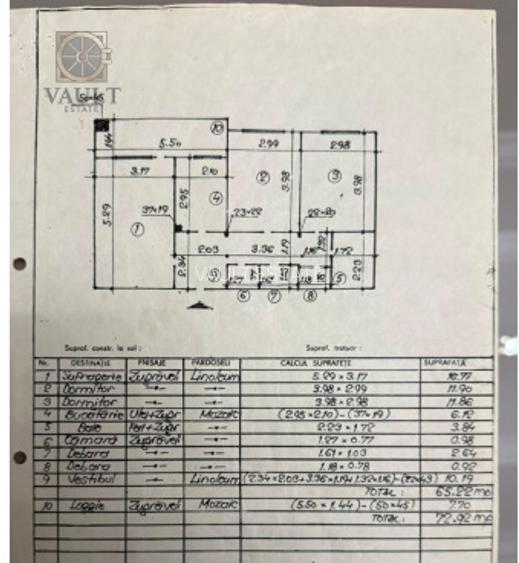 VAULT
ESTATE
50×45
1.44
5.50
10
2.99
2.98
3.17
2.10
5.29
2.95
2
3.98
3
3.98
4
37×19
1
2.03
3.36
1.19
1.72
2.34
2.23
5
6
7
8
Supraf. constr. la sol :
Supraf. trotuar :
Nr. DESTINAȚIE FINISAJE PARDOSELI CALCUL SUPRAFEȚE SUPRAFAȚĂ
1 Sufragerie Zugrăveli Linoleum 5.29 × 3.17 16.77
2 Dormitor 3.98 × 2.99 11.90
3 Dormitor 3.98 × 2.98 11.86
4 Bucătărie Ulei+Zugr Mozaic (2.95 × 2.10) - (37×19) 6.12
5 Baie Fai+Zugr 2.23 × 1.72 3.84
6 Cămară Zugrăveli 1.27 × 0.77 0.98
7 Debara 1.61 × 1.03 2.64
8 Debara 1.18 × 0.78 0.92
9 Vestibul Linoleum 10.19
TOTAL : 65.22 mp
10 Loggie Zugrăveli Mozaic (5.50 × 1.44) - (50×45) 7.70
TOTAL : 72.92 mp